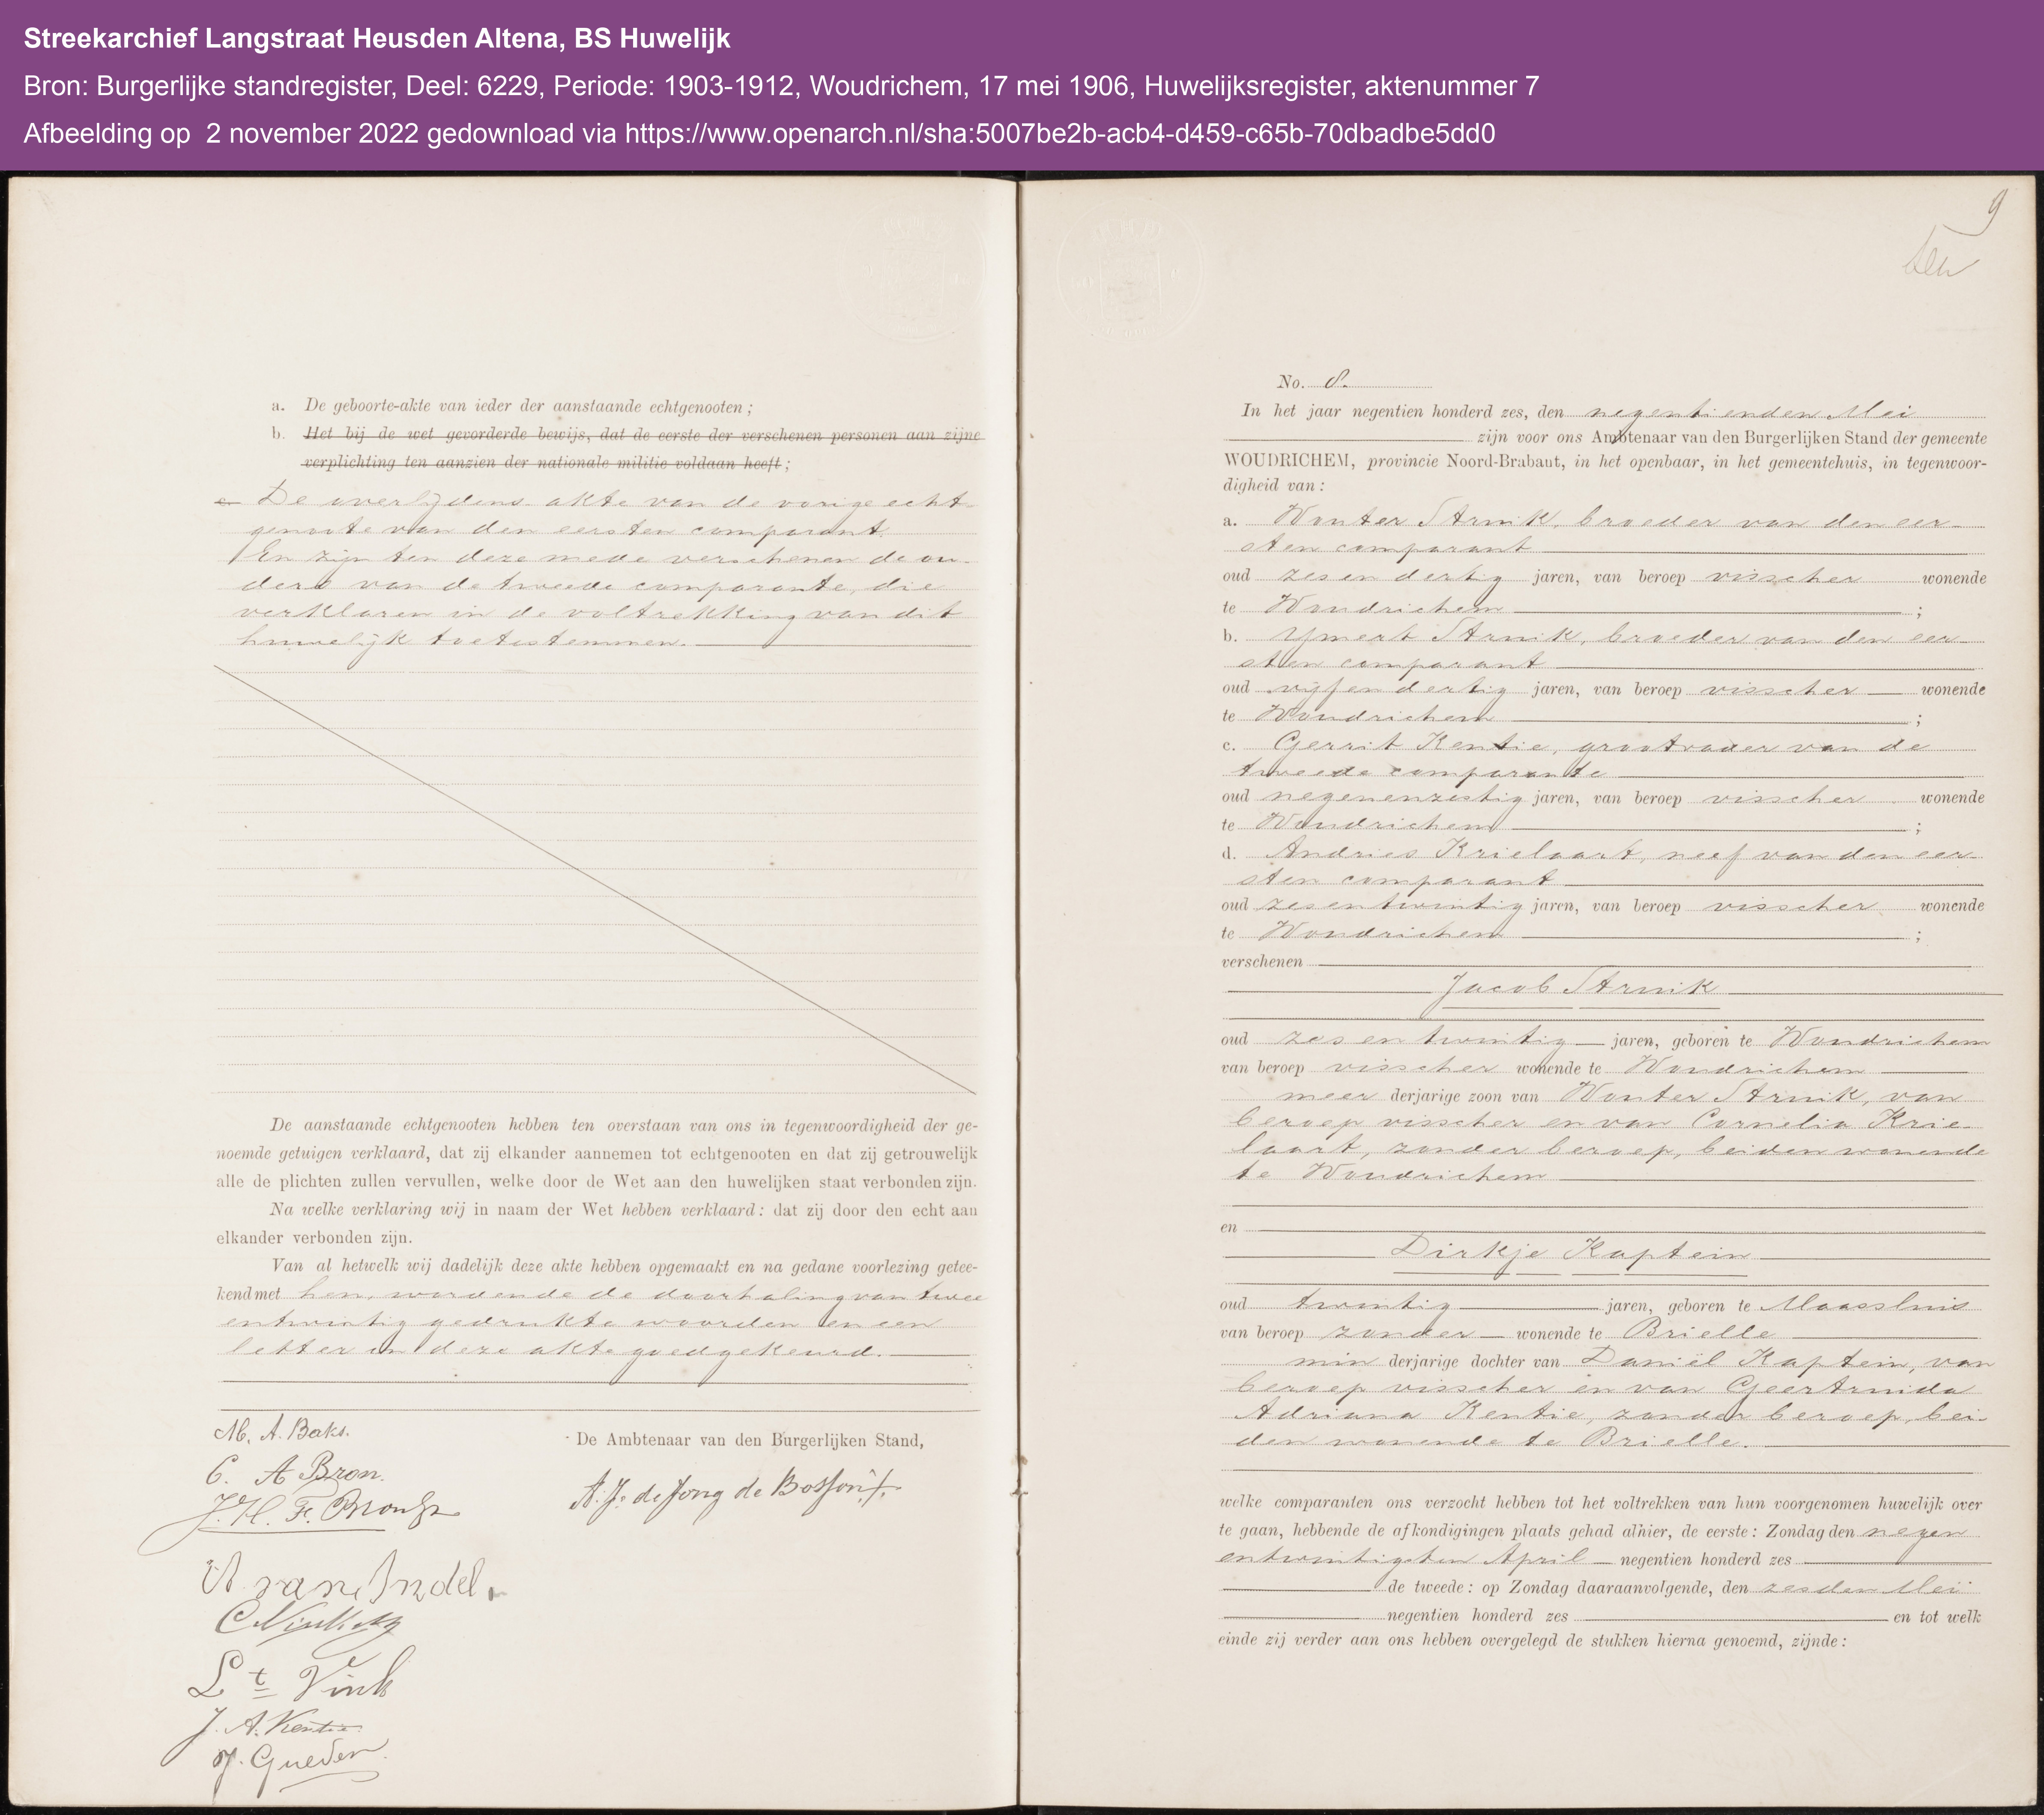 Streekarchief Langstraat Heusden Altena, BS Huwelijk
Bron: Burgerlijke standregister, Deel: 6229, Periode: 1903-1912, Woudrichem, 17 mei 1906, Huwelijksregister, aktenummer 7
Afbeelding op 2 november 2022 gedownload via https://www.openarch.nl/sha:5007be2b-acb4-d459-c65b-70dbadbe5dd0
a. De geboorte-akte van ieder der aanstaande echtgenooten;
b. Het bij de wet gevorderde bewijs, dat de eerste der verschenen personen aan zijne
verplichting ten aanzien der nationale militie voldaan heeft;
c. De overlijdens akte van de vorige echt-
genoote van den eersten comparant.
En zijn ten deze mede verschenen de ou-
ders van de tweede comparante, die
verklaren in de voltrekking van dit
huwelijk toetestemmen.
De aanstaande echtgenooten hebben ten overstaan van ons in tegenwoordigheid der ge-
noemde getuigen verklaard, dat zij elkander aannemen tot echtgenooten en dat zij getrouwelijk
alle de plichten zullen vervullen, welke door de Wet aan den huwelijken staat verbonden zijn.
Na welke verklaring wij in naam der Wet hebben verklaard: dat zij door den echt aan
elkander verbonden zijn.
Van al hetwelk wij dadelijk deze akte hebben opgemaakt en na gedane voorlezing getee-
kend met hen, wordende de doorhaling van twee
entwintig gedrukte woorden en een
letter in deze akte goedgekeurd.
M. A. Baks.
De Ambtenaar van den Burgerlijken Stand,
C. A Bron.
A. J. de Jong de Bosson
J. H. F.
A van Andel.
C
Lt Vink
J. A. Kentie
J. Gueden
9
No. 8.
In het jaar negentien honderd zes, den negentienden Mei
zijn voor ons Ambtenaar van den Burgerlijken Stand der gemeente
WOUDRICHEM, provincie Noord-Brabant, in het openbaar, in het gemeentehuis, in tegenwoor-
digheid van:
a. Wouter Struik, broeder van den eer-
sten comparant
oud zesendertig jaren, van beroep visscher wonende
te Woudrichem ;
b. Ymert Struik, broeder van den eer-
sten comparant
oud vijfendertig jaren, van beroep visscher wonende
te Woudrichem ;
c. Gerrit Kentie, grootvader van de
tweede comparante
oud negenenzestig jaren, van beroep visscher wonende
te Woudrichem ;
d. Andries Krielaart, neef van den eer-
sten comparant
oud zesentwintig jaren, van beroep visscher wonende
te Woudrichem ;
verschenen
Jacob Struik
oud zesentwintig jaren, geboren te Woudrichem
van beroep visscher wonende te Woudrichem
meer derjarige zoon van Wouter Struik, van
beroep visscher en van Cornelia Krie-
laart, zonder beroep, beiden wonende
te Woudrichem
en
Dirkje Kaptein
oud twintig jaren, geboren te Maassluis
van beroep zonder wonende te Brielle
min derjarige dochter van Daniël Kaptein, van
beroep visscher en van Geertruida
Adriana Kentie, zonder beroep, bei-
den wonende te Brielle.
welke comparanten ons verzocht hebben tot het voltrekken van hun voorgenomen huwelijk over
te gaan, hebbende de afkondigingen plaats gehad alhier, de eerste: Zondag den negen
entwintigsten April negentien honderd zes
de tweede: op Zondag daaraanvolgende, den zesden Mei
negentien honderd zes en tot welk
einde zij verder aan ons hebben overgelegd de stukken hierna genoemd, zijnde: